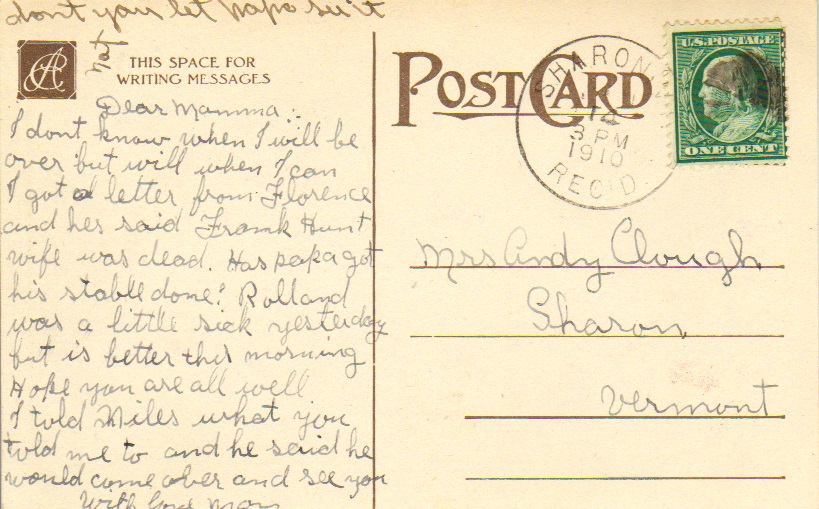 dont you let Papa see it
Nat
THIS SPACE FOR
WRITING MESSAGES
Dear Mamma
I dont know when I will be
over but will when I can
I got a letter from Florence
and hes said Frank Hunt
wife was dead. Has papa got
his stable done? Rolland
was a little sick yesterday
but is better this morning
Hope you are all well
I told Miles what you
told me to and he said he
would come over and see you
With love
POST CARD
SHARON
3 PM
1910
REC'D.
U.S. POSTAGE
ONE CENT
Mrs Andy Clough
Sharon,
Vermont